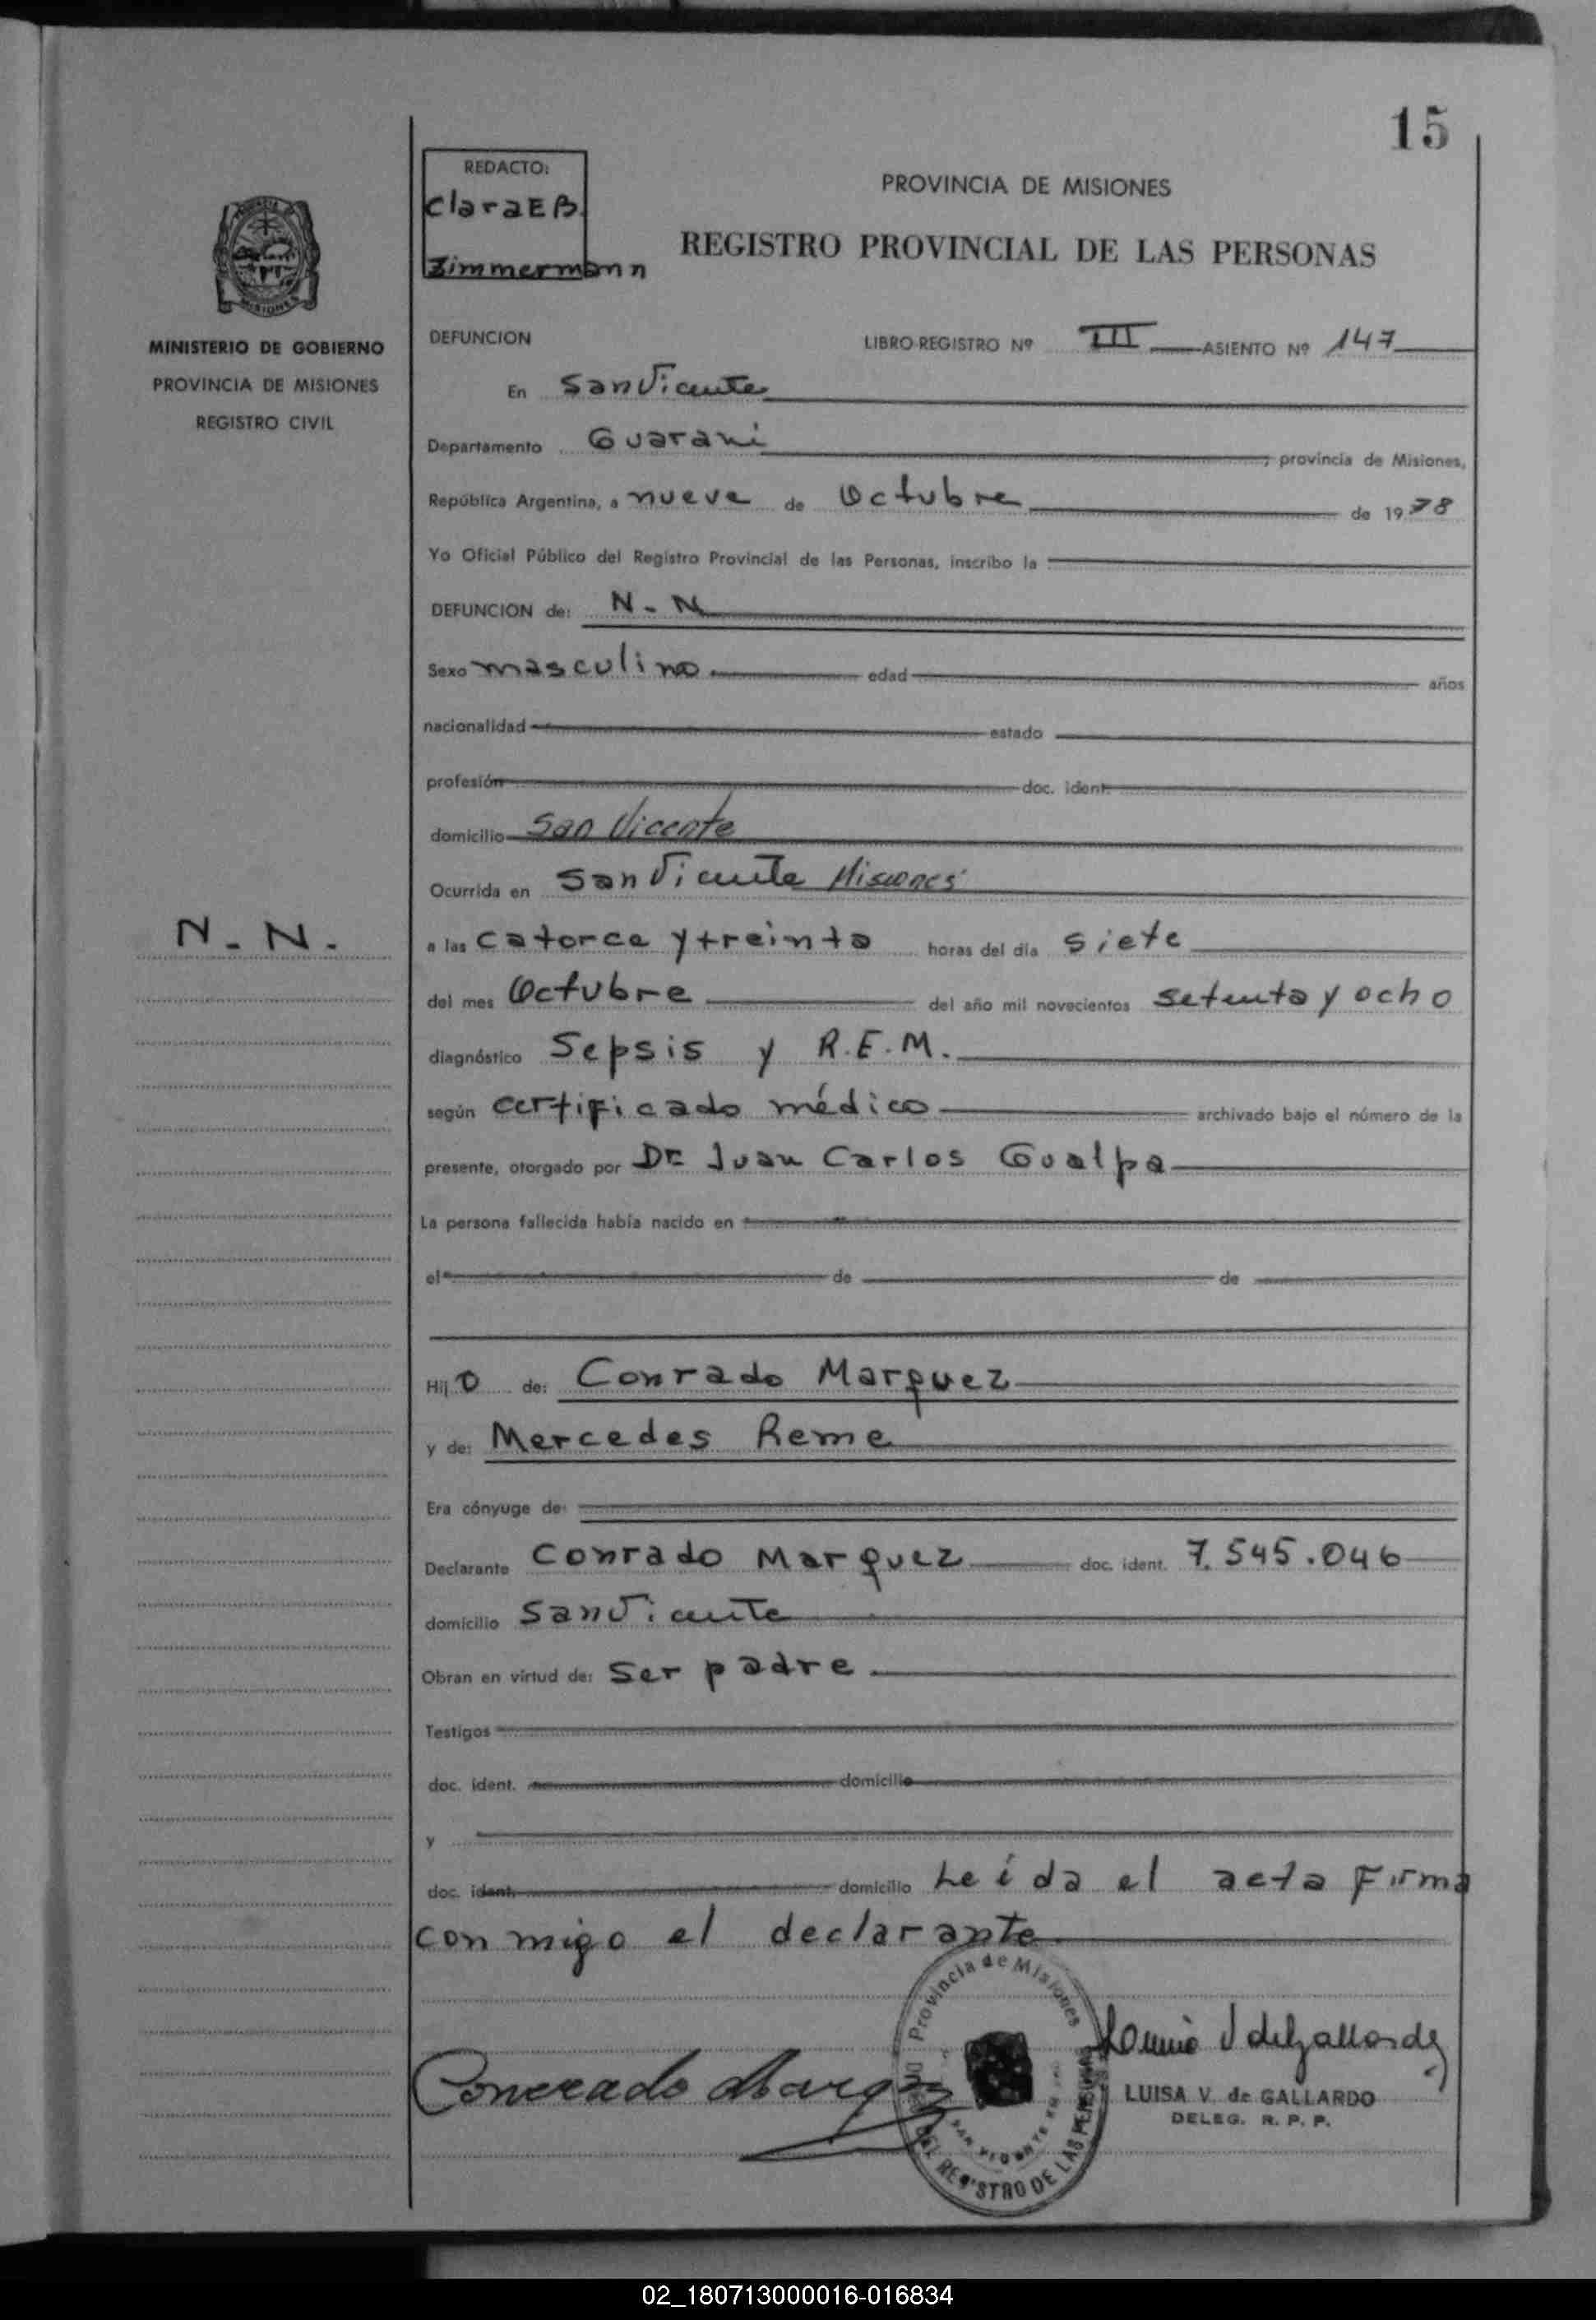 15
REDACTO:
Clara E B.
Zimmermann
PROVINCIA DE MISIONES
REGISTRO PROVINCIAL DE LAS PERSONAS
MINISTERIO DE GOBIERNO
PROVINCIA DE MISIONES
REGISTRO CIVIL
DEFUNCION LIBRO-REGISTRO Nº III ASIENTO Nº 147
En San Vicente
Departamento Guarani, provincia de Misiones,
República Argentina, a nueve de Octubre de 1978
Yo Oficial Público del Registro Provincial de las Personas, inscribo la
DEFUNCION de: N - N
Sexo masculino edad años
nacionalidad estado
profesión doc. ident.
domicilio San Vicente
Ocurrida en San Vicente Misiones
N - N.
a las catorce y treinta horas del día siete
del mes Octubre del año mil novecientos setenta y ocho
diagnóstico Sepsis y R.E.M.
según certificado médico archivado bajo el número de la
presente, otorgado por Dr. Juan Carlos Gualpa
La persona fallecida había nacido en
el de de
Hijo de: Conrado Marquez
y de: Mercedes Reme
Era cónyuge de:
Declarante Conrado Marquez doc. ident. 7.545.046
domicilio San Vicente
Obran en virtud de: Ser padre
Testigos
doc. ident. domicilio
y
doc. ident. domicilio Leída el acta firma
conmigo el declarante
Provincia de Misiones
DEL REGISTRO DE LAS PERSONAS
SAN VICENTE
LUISA V. de GALLARDO
DELEG. R. P. P.
02_180713000016-016834